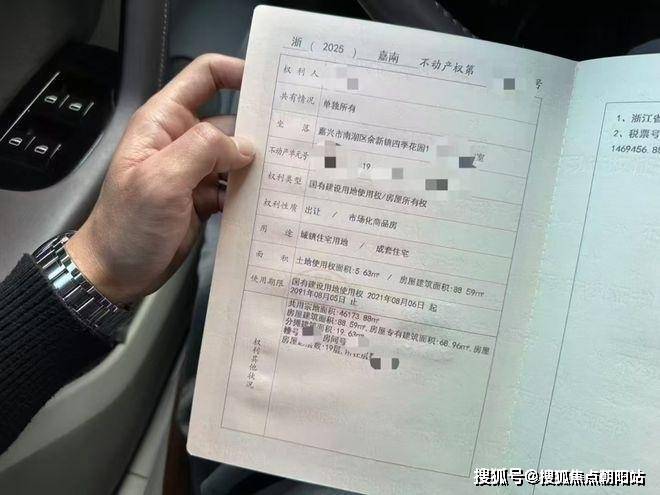 浙（2025） 嘉南 不动产权第 号
权利人
共有情况 单独所有
坐落 嘉兴市南湖区余新镇四季花园1 室
不动产单元号 19
权利类型 国有建设用地使用权/房屋所有权
权利性质 出让 / 市场化商品房
用途 城镇住宅用地 / 成套住宅
面积 土地使用权面积:5.63㎡ / 房屋建筑面积:88.59㎡
使用期限 国有建设用地使用权 2021年08月06日 起
2091年08月05日 止
权利其他状况
共用宗地面积:46173.88㎡
房屋建筑面积:88.59㎡,房屋专有建筑面积:68.96㎡,房屋
分摊建筑面积:19.63㎡
幢号 房间号
房屋总层数:19层,
1、浙江省
2、税票号
1469456.85
搜狐号@搜狐焦点朝阳站